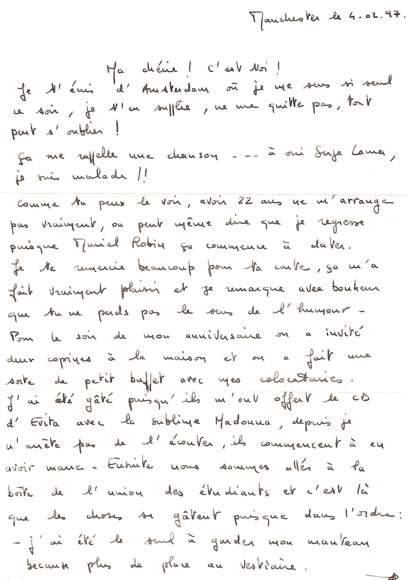 Manchester le 4.02.97.
Ma chérie ! C'est toi !
Je t'écris d'Amsterdam où je me sens si seul
ce soir, je t'en supplie, ne me quitte pas, tout
peut s'oublier !
ça me rappelle une chanson --- à oui Serge Lama,
je suis malade !!
comme tu peux le voir, avoir 22 ans ne m'arrange
pas vraiment, on peut même dire que je régresse
puisque Muriel Robin ça commence à dater.
Je te remercie beaucoup pour ta carte, ça m'a
fait vraiment plaisir et je remarque avec bonheur
que tu ne perds pas le sens de l'humour -
Pour le soir de mon anniversaire on a invité
deux copines à la maison et on a fait une
sorte de petit buffet avec mes colocataires.
J'ai été gâté puisqu'ils m'ont offert le CD
d'Evita avec la sublime Madonna, depuis je
n'arrête pas de l'écouter, ils commencent à en
avoir marre - Ensuite nous sommes allés à la
boîte de l'union des étudiants et c'est là
que les choses se gâtent puisque dans l'ordre:
- j'ai été le seul à garder mon manteau
because plus de place au vestiaire.